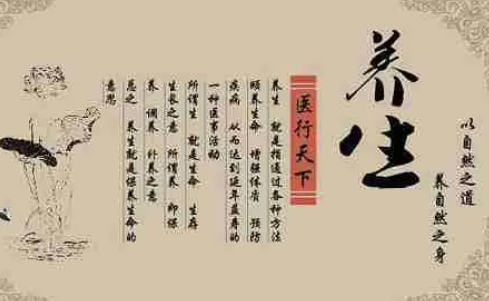 养生
以自然之道
养自然之身
医行天下
养生 就是指通过各种方法
颐养生命 增强体质 预防
疾病 从而达到延年益寿的
一种医事活动
所谓生 就是生命 生存
生长之意 所谓养 即保
养 调养 补养之意
总之 养生就是保养生命的
意思